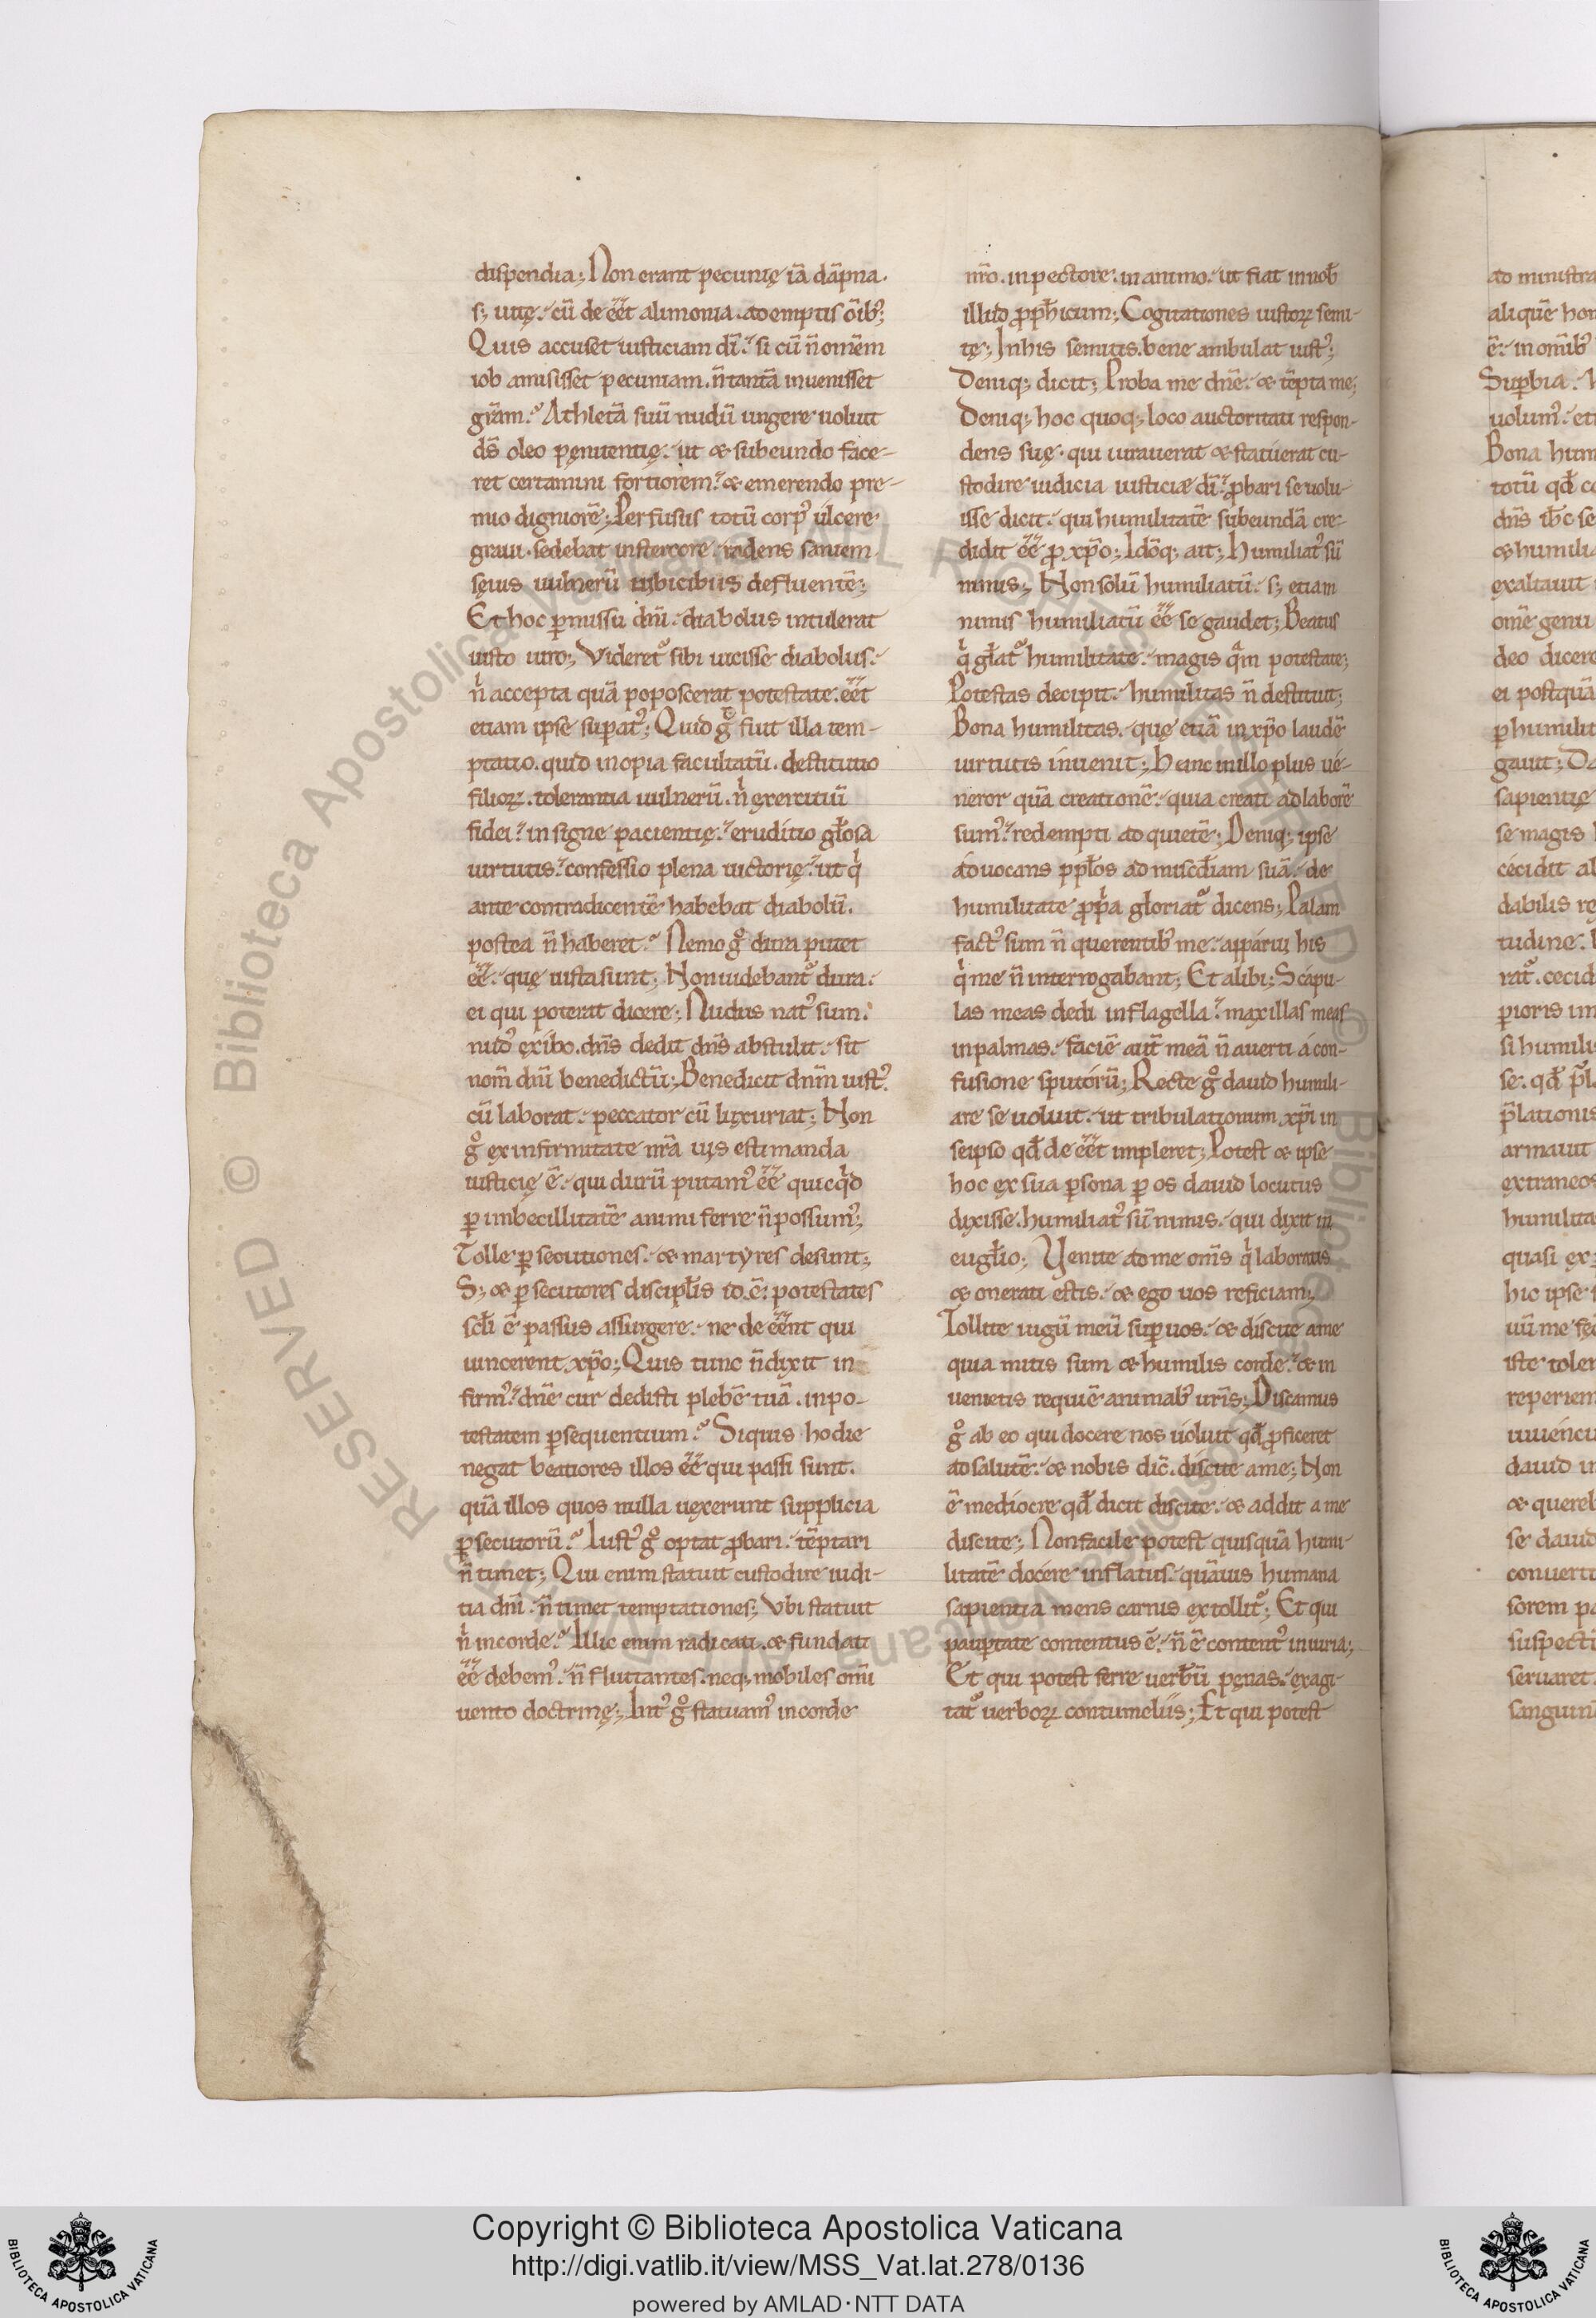 dispendia; Non erant pecunię iā dāpna.
s; uitę. cū de eēt alimonia. adēptis oīb;
Quis accuset iusticiam dī. si cū ñ omēm
iob amisisset pecuniam. ñ tantā inuenisset
grām. Athletā suū nudū ungere uoluit
dš oleo pęnitentię. ut & subeundo face-
ret certamini fortiorem. & emerendo pre-
mio digniorē; Perfusus totū corp' ulcere
graui. sedebat in stercore. radens saniem
sęuis uulnerū
Et hoc pmissu dnī. diabolus intulerat
iusto uiro; Videret sibi uicisse diabolus.
ñ accepta quā poposcerat potestate. eēt
etiam ipse supat'; Quid g fuit illa tem-
ptatio. quid inopia facultatū. destitutio
filioꝝ. tolerantia uulnerū. ñ exercitiū
fidei. insigne pacientię. eruditio głosa
uirtutis. confessio plena uictorię. ut q
ante contradicentē habebat diabolū.
postea ñ haberet. Nemo g dura putet
eē. quę iusta sunt; Non uidebant dura
ei qui poterat dicere; Nudus nat' sum.
nud' exibo. dnš dedit dnš abstulit. sit
nom̄ dnī benedictū; Benedicit dnm̄ iust'
cū laborat. peccator cū luxuriat; Non
g ex infirmitate nr̄a uis estimanda
iusticię ē. qui durū putam' eē quicqd
p imbecillitatē animi ferre ñ possum';
Tolle psecutiones. & martyres desunt;
S; & psecutores discipłis id. ē. potestates
scłi ē passus assurgere. ne de eēnt qui
uincerent xp̄o; Quis tunc ñ dixit in
firm'. dnē cur dedisti plebē tuā. in po-
testatem psequentium. Siquis hodie
negat beatiores illos eē qui passi sunt.
quā illos quos nulla uexerunt supplicia
psecutorū. Iust' g optat pbari. tēptari
ñ timet; Qui enim statuit custodire iudi-
tia dnī. ñ timet temptationes; Vbi statuit
ñ in corde. Illic enim radicati. & fundati
eē debem'. ñ fluitantes. neq; mobiles omī
uento doctrinę; Int' g statuam' in corde
nr̄o. in pectore. in animo. ut fiat in nob̄
illud pph̄icum; Cogitationes iustoꝝ semi-
tę; In his semitis. bene ambulat iust';
Deniq; dicit; Proba me dnē. & tēpta me;
Deniq; hoc quoq; loco auctoritati respon-
dens suę. qui iurauerat & statuerat cu-
stodire iudicia iusticiæ dī. pbari se uolu-
isse dicit. qui humilitatē subeundā cre-
didit eē p xp̄o; Idōq; ait; Humiliat' sū
nimis; Non solū humiliatū. s; etiam
nimis humiliatū eē se gaudet; Beatus
q głat humilitate. magis qm potestate;
Potestas decipit. humilitas ñ destituit;
Bona humilitas. quę etiā in xp̄o laudē
uirtutis inuenit; Hanc in illo plus ue-
neror quā creationē. quia creati ad laborē
sum'. redempti ad quietē; Deniq; ipse
aduocans ppłos ad miscđiam suā. de
humilitate ppa gloriat dicens; Palam
fact' sum ñ querentib' me. apparui his
q me ñ interrogabant; Et alibi; Scapu-
las meas dedi in flagella. maxillas meas
in palmas. faciē aut̄ meā ñ auerti a con-
fusione sputorū; Recte g dauid humili-
are se uoluit. ut tribulationum xp̄i in
seipso qđ de eēt impleret; Potest & ipse
hoc ex sua psona p os dauid locutus
dixisse. humiliat' sū nimis. qui dixit in
eugłio; Venite ad me omš q laboratis
& onerati estis. & ego uos reficiam;
Tollite iugū meū sup uos. & discite a me
quia mitis sum & humilis corde. & in
uenietis requiē animab' uris; Discamus
g ab eo qui docere nos uoluit qđ pficeret
ad salutē. & nobis dic̄. discite a me; Non
ē mediocre qđ dicit discite. & addit a me
discite; Non facile potest quisquā humi-
litatē docere inflatus. quāuis humana
sapientia mens carnis extollit; Et qui
pauptate contentus ē. ñ ē content' iniuria;
Et qui potest ferre uerb̄ū penas. exagi-
tat uerboꝝ contumeliis; Et qui potest
Copyright © Biblioteca Apostolica Vaticana
http://digi.vatlib.it/view/MSS_Vat.lat.278/0136
powered by AMLAD·NTT DATA